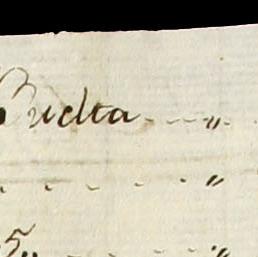 Vuelta - - - "
- - - - - "
5" - - - - "